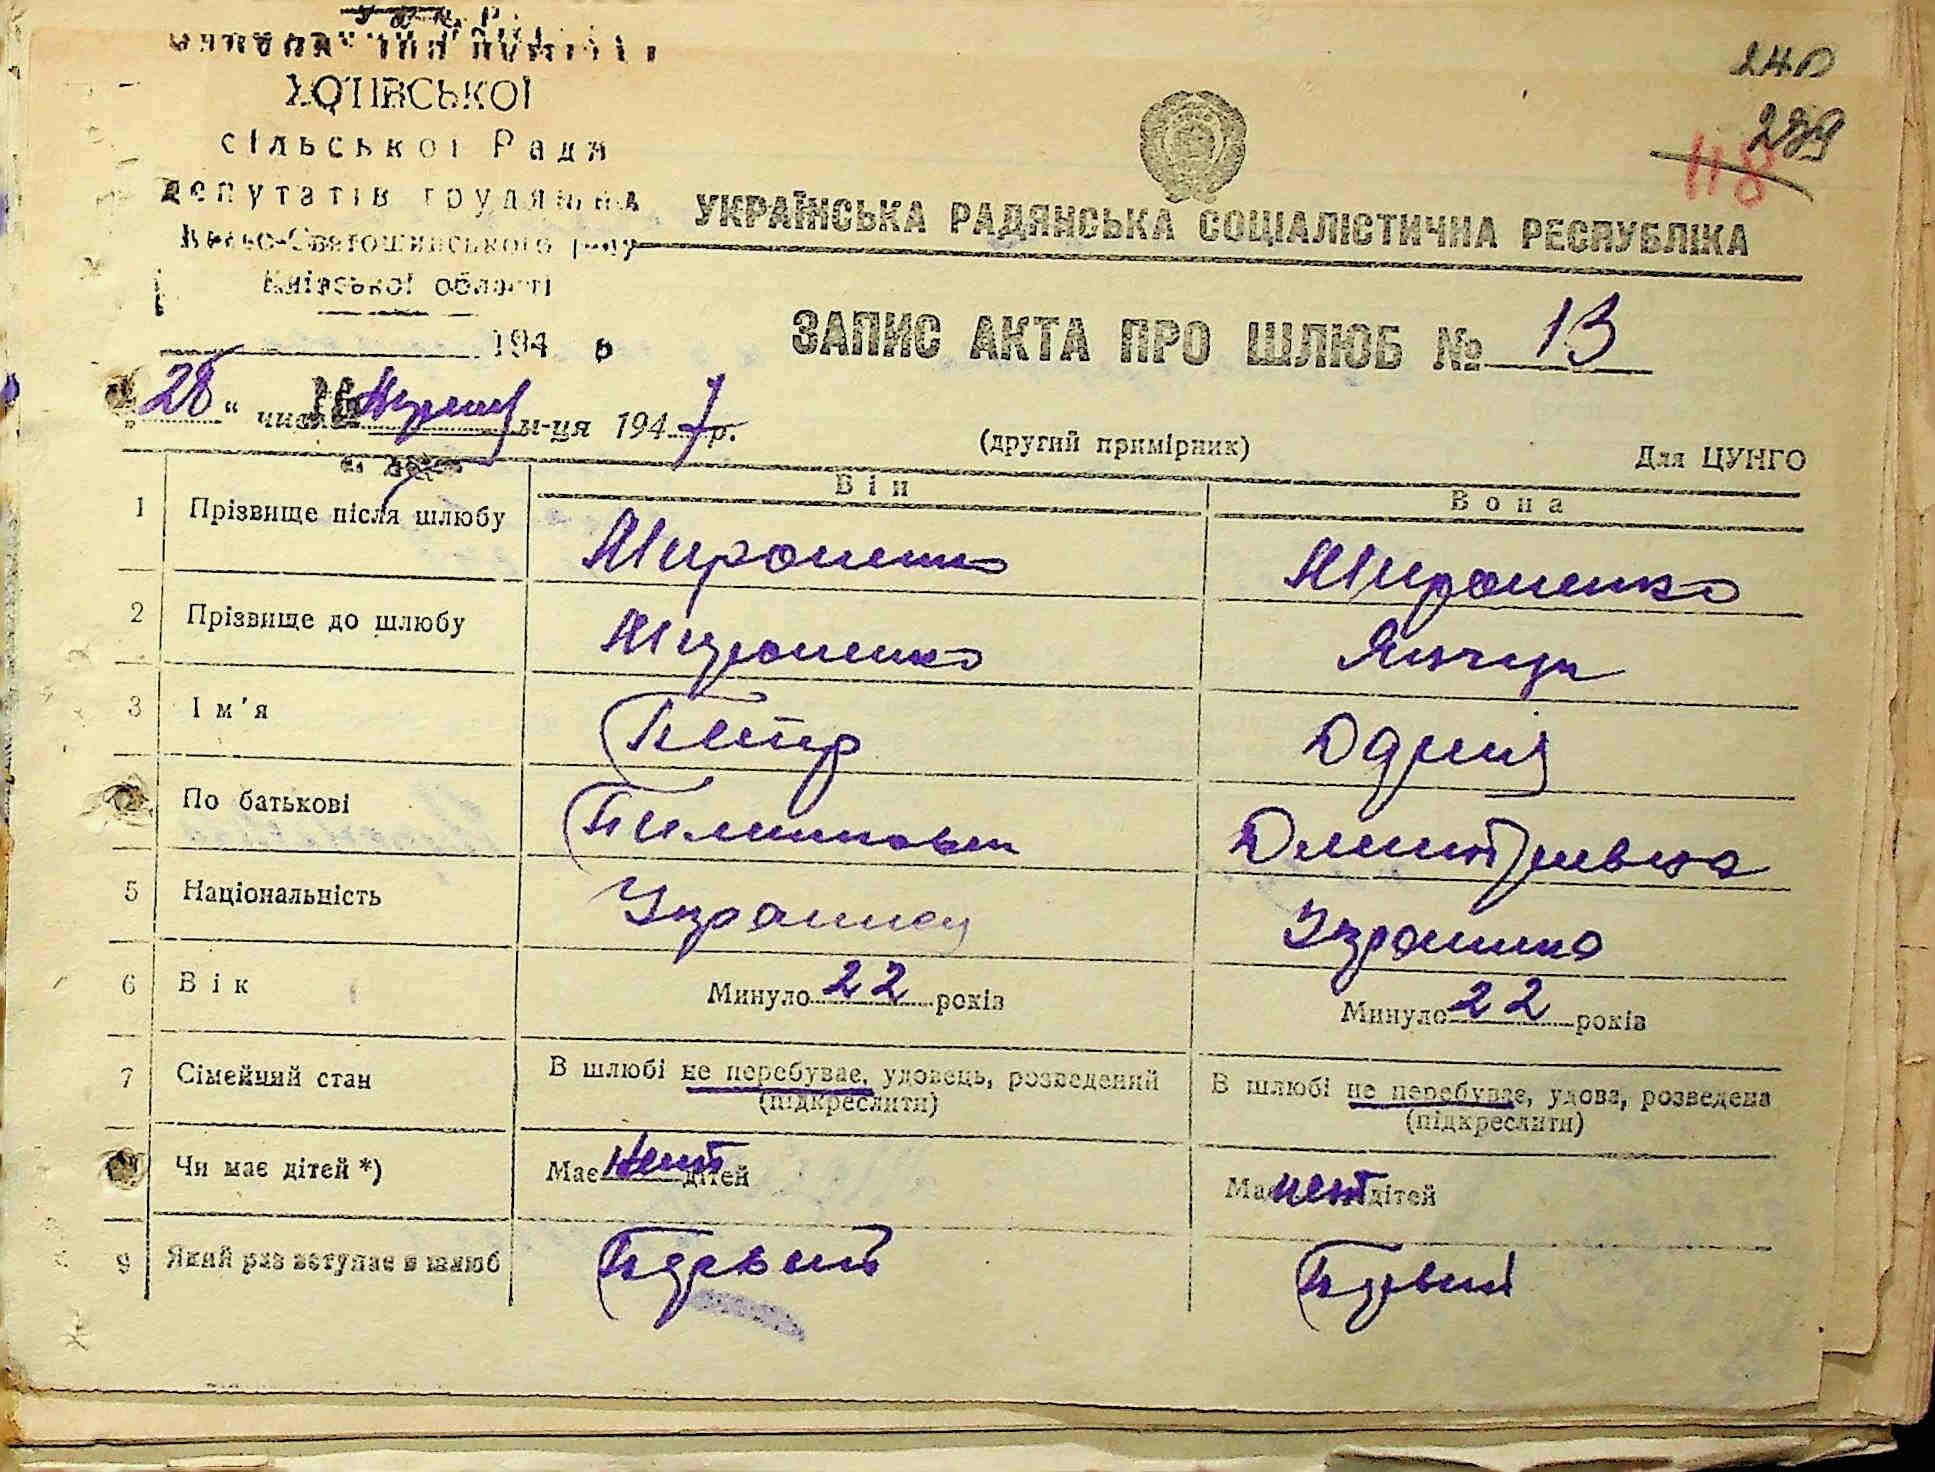 240
239
118
ХОТІВСЬКОЇ
сільської Ради
депутатів трудящих
Києво-Святошинського р-ну
Київської області
194 р
УКРАЇНСЬКА РАДЯНСЬКА СОЦІАЛІСТИЧНА РЕСПУБЛІКА
ЗАПИС АКТА ПРО ШЛЮБ № 13
„28" числа м-ця 1947 р.
(другий примірник)
Для ЦУНГО
Він Вона
1 Прізвище після шлюбу Мироненко Мироненко
2 Прізвище до шлюбу Мироненко Янчук
3 Ім'я Петр
По батькові Пилипович Дмитривна
5 Національність Украинец Украинка
6 Вік Минуло 22 років Минуло 22 років
7 Сімейний стан В шлюбі не перебуває, удовець, розведений (підкреслити) В шлюбі не перебуває, удова, розведена (підкреслити)
Чи має дітей *) Має нет дітей Має нет дітей
9 Який раз вступає в шлюб Первий Первий